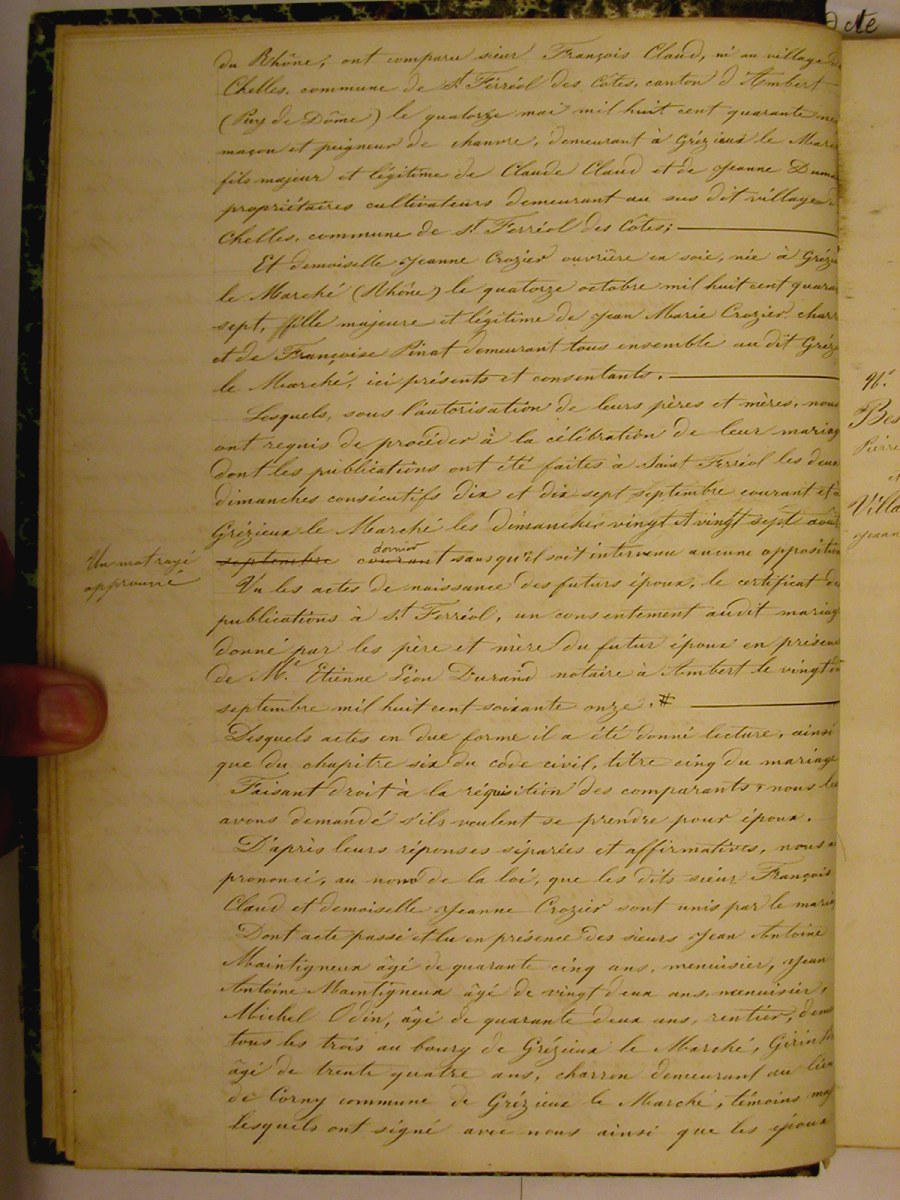 acte
du Rhône, ont comparu sieur François Claud, né au village de
Chelles, commune de St Férréol des Cotes, canton d'Ambert
(Puy de Dôme) le quatorze mai mil huit cent quarante
maçon et peigneur de chanvre, demeurant à Grézieux le Mar
fils majeur et légitime de Claude Claud et de Jeanne Duma
propriétaires cultivateurs demeurant au sus dit village de
Chelles, commune de St Ferréol des Cotes;
Et demoiselle Jeanne Crozier ouvrière en soie, née à Grézi
le Marché (Rhône) le quatorze octobre mil huit cent quara
sept, fille majeure et légitime de Jean Marie Crozier, charr
et de Françoise Pinat demeurant tous ensemble au dit Gréz
le Marché, ici présents et consentants.
Lesquels, sous l'autorisation de leurs pères et mères, nous
ont requis de procéder à la célébration de leur mariag
dont les publications ont été faites à Saint Ferréol les deux
dimanches consécutifs dix et dix sept septembre courant et à
Grézieux le Marché les dimanches vingt et vingt sept août
septembre courant dernier sans qu'il soit intervenu aucune opposition
Un mot rayé
approuvé
Vu les actes de naissance des futurs époux, le certificat de
publications à St Ferréol, un consentement audit mariag
donné par les père et mère du futur époux en présenc
de Me. Etienne Léon Durand notaire à Ambert le vingt
septembre mil huit cent soixante onze. #
Desquels actes en due forme il a été donné lecture, ainsi
que du chapitre six du code civil, titre cinq du mariage
Faisant droit à la réquisition des comparants, nous les
avons demandé s'ils veulent se prendre pour époux.
D'après leurs réponses séparées et affirmatives, nous a
prononcé, au nom de la loi, que les dits sieur François
Claud et demoiselle Jeanne Crozier sont unis par le maria
Dont acte passé et lu en présence des sieurs Jean Antoine
Maintigneux âgé de quarante cinq ans, menuisier, Jean
Antoine Maintigneux âgé de vingt deux ans, menuisier,
Michel Odin, âgé de quarante deux ans, rentier, dem
tous les trois au bourg de Grézieux le Marché, Girin
âgé de trente quatre ans, charron demeurant au lieu
de Corny commune de Grézieux le Marché, témoins maj
lesquels ont signé avec nous ainsi que les époux
N°
Bes
Pierre
et
Villa
Jeann